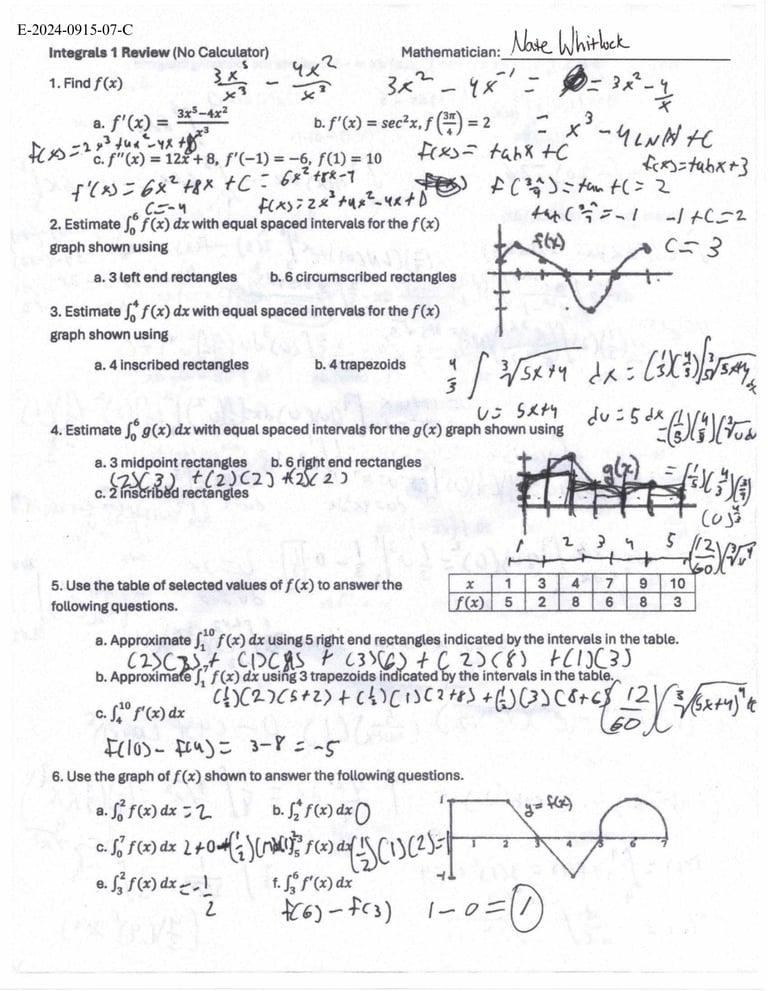 E-2024-0915-07-C
Integrals 1 Review (No Calculator)
Mathematician: Nate Whitlock
1. Find f(x)
3x^5/x^3 - 4x^2/x^3
3x^2 - 4x^-1 = = 3x^2 - 4/x
a. f'(x) = (3x^5-4x^2)/x^3
b. f'(x) = sec^2x, f(3π/4) = 2
= x^3 - 4 LN|x| + C
f(x)= 2x^3+4x^2-4x+
c. f''(x) = 12x + 8, f'(-1) = -6, f(1) = 10
f(x)= tanx + C
f(x)=tanx+3
f'(x) = 6x^2 + 8x + C = 6x^2+8x-
C=-4
f(x)=2x^3+4x^2-4x+D
f(3π/4)=tan +C = 2
tan(3π/4)=-1 -1+C=2
C=3
2. Estimate ∫_0^6 f(x) dx with equal spaced intervals for the f(x)
graph shown using
f(x)
a. 3 left end rectangles
b. 6 circumscribed rectangles
3. Estimate ∫_0^4 f(x) dx with equal spaced intervals for the f(x)
graph shown using
a. 4 inscribed rectangles
b. 4 trapezoids
4/3 ∫ ∛5x+4 dx = (1/3)(4/5)∫ ∛5x+4 dx
U = 5x+4 du = 5 dx
4. Estimate ∫_0^6 g(x) dx with equal spaced intervals for the g(x) graph shown using
a. 3 midpoint rectangles
b. 6 right end rectangles
(2)(3) +(2)(2) +(2)(2)
c. 2 inscribed rectangles
g(x)
= (1/5)(4/3)(3/4)
(U)^4/3
1 2 3 4 5
(12/60)
5. Use the table of selected values of f(x) to answer the
following questions.
x 1 3 4 7 9 10
f(x) 5 2 8 6 8 3
a. Approximate ∫_1^10 f(x) dx using 5 right end rectangles indicated by the intervals in the table.
(2)(2) + (1)(8) + (3)(6) + (2)(8) +(1)(3)
b. Approximate ∫_1^7 f(x) dx using 3 trapezoids indicated by the intervals in the table.
(1/2)(2)(5+2) + (1/2)(1)(2+8) +(1/2)(3)(8+6)
(12/60)(∛(5x+4)^4 +c
c. ∫_4^10 f'(x) dx
f(10) - f(4) = 3-8 = -5
6. Use the graph of f(x) shown to answer the following questions.
a. ∫_0^2 f(x) dx = 2
b. ∫_2^4 f(x) dx 0
c. ∫_0^7 f(x) dx 2+0+
∫_5 f(x) dx (1/2)(1)(2)=1
e. ∫_3^2 f(x) dx = -1/2
f. ∫_3^6 f'(x) dx
f(6) - f(3) 1-0=1
1
y = f(x)
1 2 3 4 5 6 7
-1